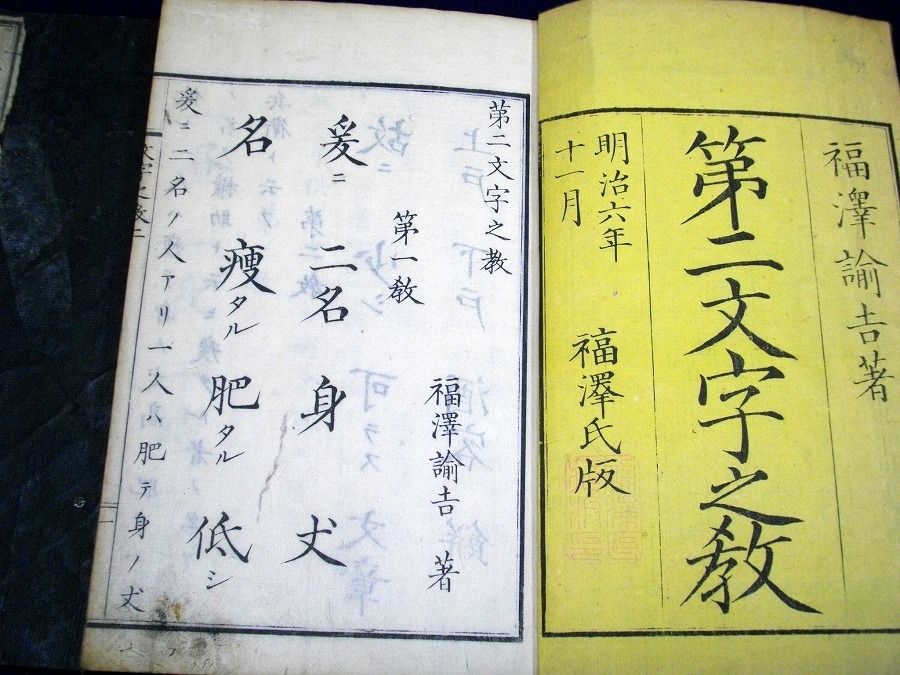 福澤諭吉著
第二文字之教
明治六年
十一月
福澤氏版
第二文字之教
福澤諭吉 著
第一教
爰ニ 二名 身 丈
名 痩タル 肥タル 低シ
爰ニ二名ノ人アリ一人ハ肥テ身ノ丈